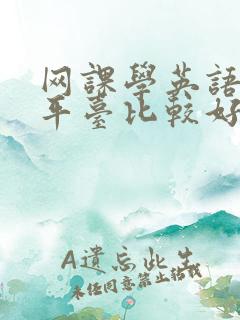 网課學英語
平臺比較好
A遺忘此生
未经同意禁止转载